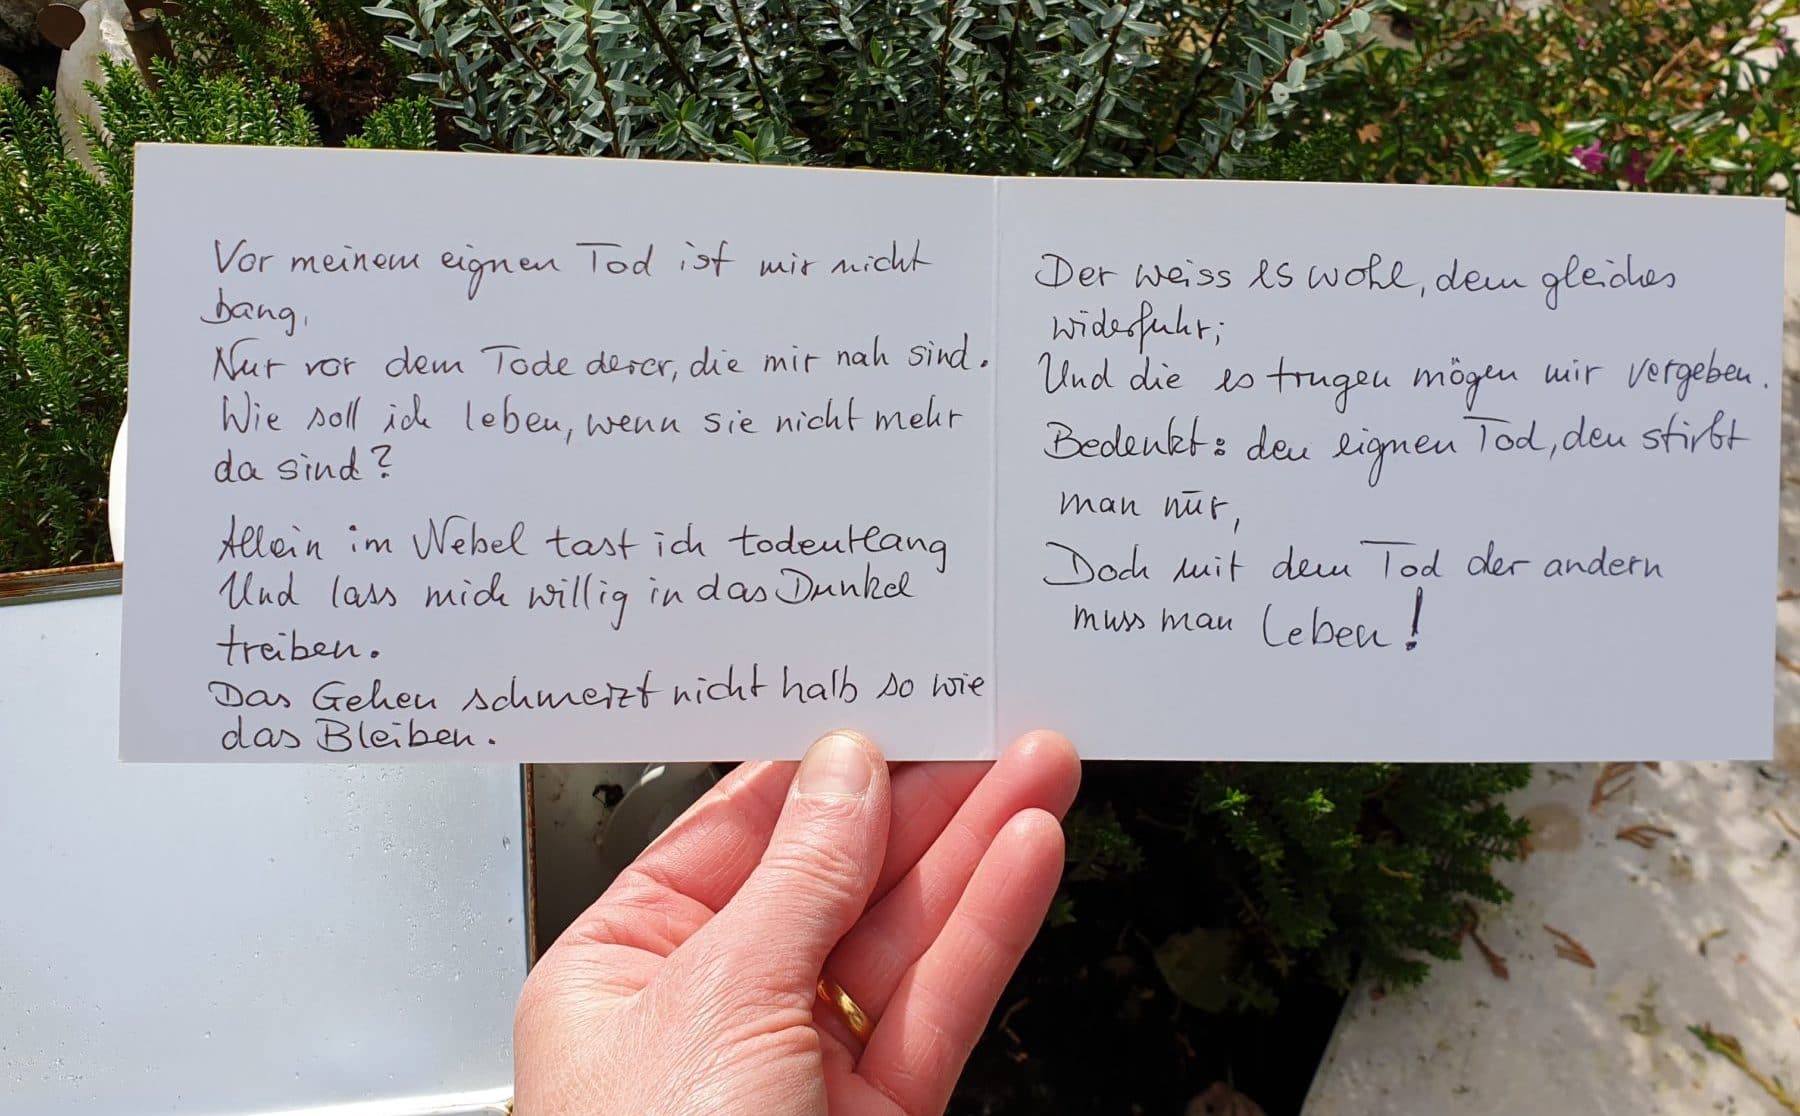 Vor meinem eignen Tod ist mir nicht
bang,
Nur vor dem Tode derer, die mir nah sind.
Wie soll ich leben, wenn sie nicht mehr
da sind?
Allein im Nebel tast ich todentlang
Und lass mich willig in das Dunkel
treiben.
Das Gehen schmerzt nicht halb so wie
das Bleiben.
Der weiss es wohl, dem gleiches
widerfuhr;
Und die es trugen mögen mir vergeben.
Bedenkt: den eignen Tod, den stirbt
man nur,
Doch mit dem Tod der andern
muss man leben!